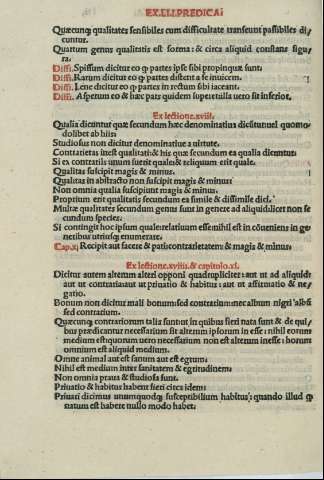 EX.LI.PREDICAI
Quæcunq; qualitates sensibiles cum difficultate transeunt passibiles di/
cuntur.
Quartum genus qualitatis est forma: & circa aliquid constans figu/
ra.
Diffi. Spissum dicitur eo q partes ipse sibi propinquæ sunt.
Diffi. Rarum dicitur eo q partes distent a se inuicem.
Diffi. Lene dicitur eo q partes in rectum sibi iaceant.
Diffi. Asperum eo & hæc pars quidem superet illa uero sit inferior.
Ex lectione.xviii.
Qualia dicuntur quæ secundum hæc denominatiue dicuntur uel quomo/
dolibet ab his:
Studiosus non dicitur denominatiue a uirtute.
Contrarietas inest qualitati: & his quæ secundum ea qualia dicuntur.
Si ex contrariis unum fuerit quale & reliquum erit quale.
Qualitas suscipit magis & minus.
Qualitas in abstracto non suscipit magis & minus:
Non omnia qualia suscipiunt magis & minus.
Proprium erit qualitatis secundum ea simile & dissimile dici.
Multæ qualitates secundum genus sunt in genere ad aliquid: licet non se
cundum species.
Si contingit hoc ipsum quale: relatiuum esse: nihil est in cōueniens in ge/
neribus utrisq; enumerare.
Cap.x. Recipit aut facere & pati: contrarietatem: & magis & minus:
Ex lectione.xviiii.& capitulo.xi.
Dicitur autem alterum alteri opponi quadrupliciter: aut ut ad aliquid:
aut ut contraria: aut ut priuatio & habitus: aut ut affirmatio & ne/
gatio.
Bonum non dicitur mali bonum: sed contrarium: nec album nigri albū
sed contrarium.
Quæcunq; contrariorum talia sunt ut in quibus fieri nata sunt & de qui/
bus prædicantur necessarium sit alterum ipsorum in esse: nihil eorum
medium est: quorum uero necessarium non est alterum inesse: horum
omnium est aliquid medium.
Omne animal aut est sanum aut est egrum:
Nihil est medium inter sanitatem & egritudinem:
Non omnia praua & studiosa sunt.
Priuatio & habitus habent fieri circa idem:
Priuari dicimus unumquodq; susceptibilium habitus: quando illud q
natum est habere nullo modo habet: